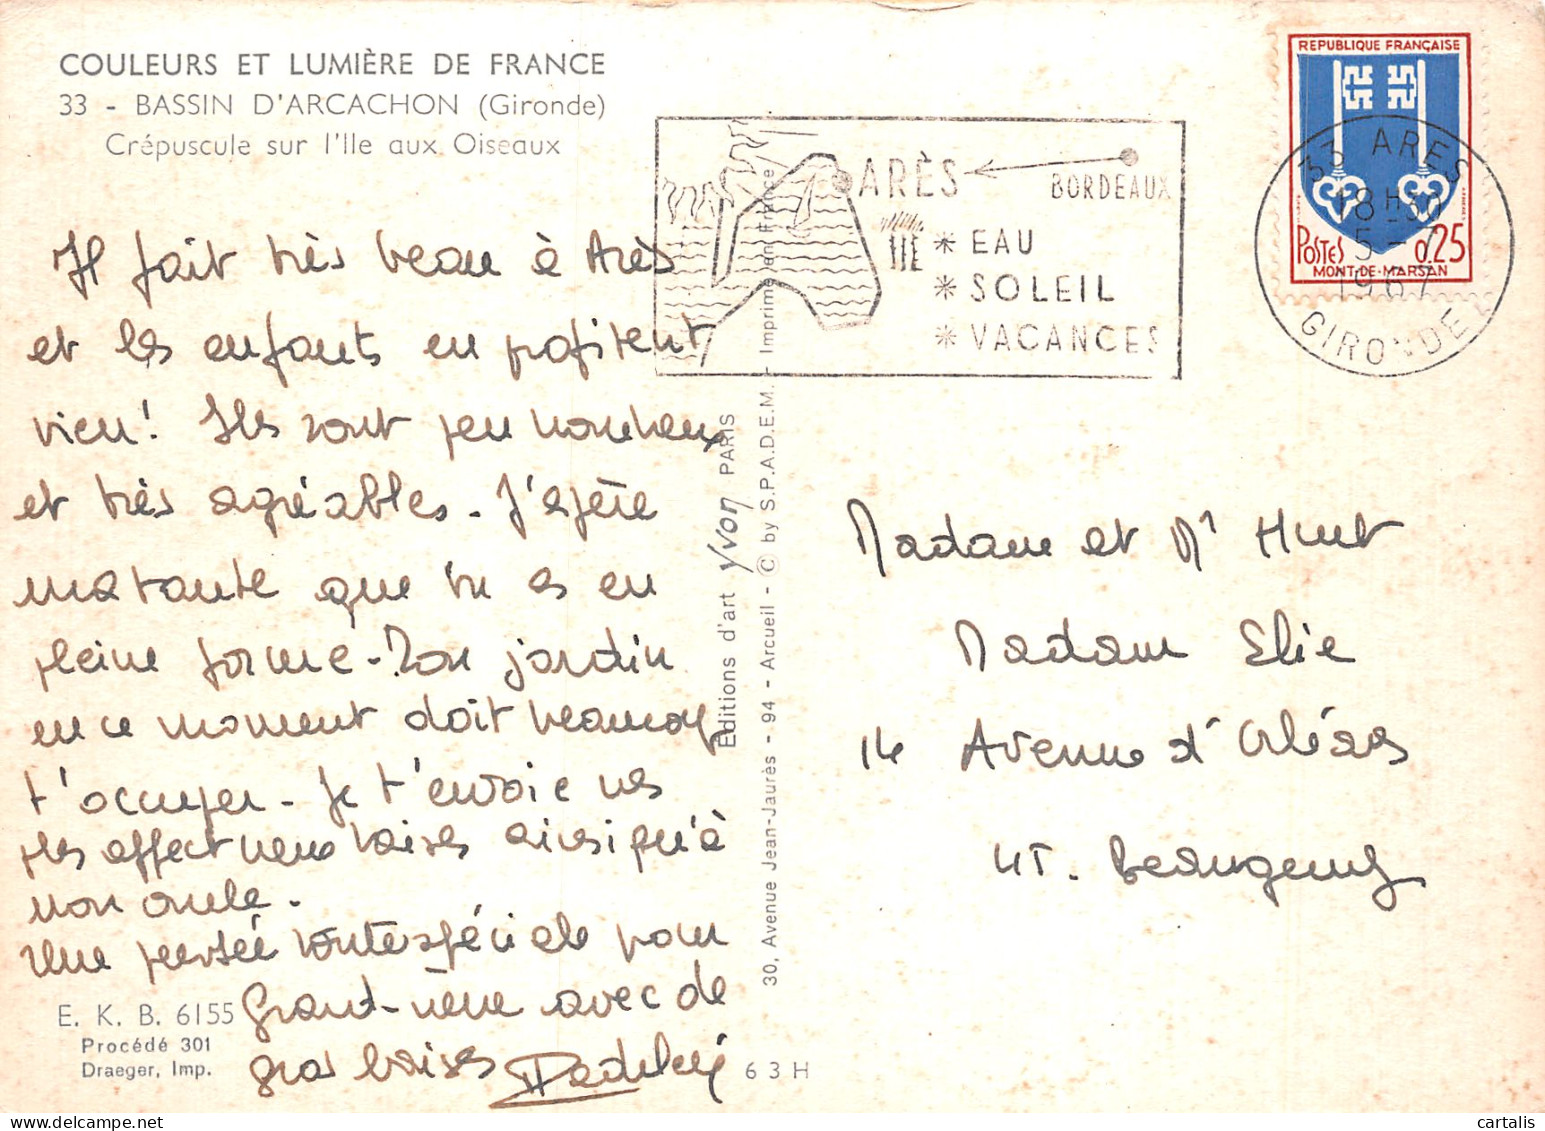 COULEURS ET LUMIÈRE DE FRANCE
33 - BASSIN D'ARCACHON (Gironde)
Crépuscule sur l'Ile aux Oiseaux
Il fait très beau à Arès
et les enfants en profitent
bien! Ils sont peu nombreux
et très agréables. J'espère
ma tante que tu es en
pleine forme. Ton jardin
en ce moment doit beaucoup
t'occuper. Je t'envoie mes
plus affectueux baisers ainsi qu'à
mon oncle.
Une pensée toute spéciale pour
Grand-mère avec de
gros baisers
E. K. B. 6155
Procédé 301
Draeger, Imp.
63H
Editions d'art Yvon PARIS
30, Avenue Jean-Jaurès - 94 - Arcueil - © by S.P.A.D.E.M. - Imprimé en France
ARÈS
BORDEAUX
* EAU
* SOLEIL
* VACANCES
REPUBLIQUE FRANÇAISE
POSTES 0,25
MONT-DE-MARSAN
33 ARES
18H30
5-7
1967
GIRONDE
Madame et Mr Huet
Madame Elie
14 Avenue d'Orléans
45. Beaugency